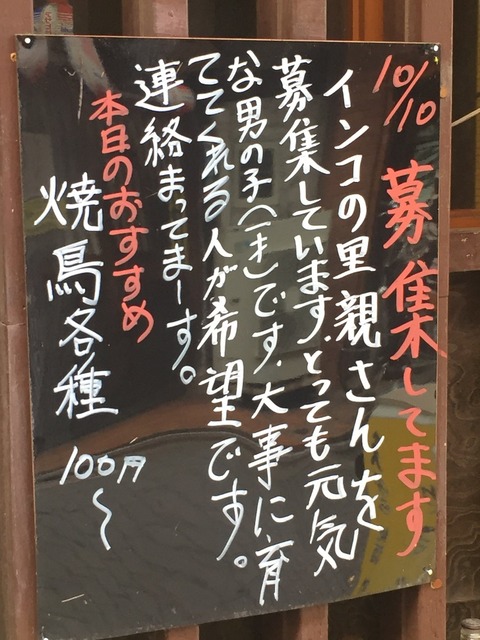 10/10 募集してます
インコの里親さんを
募集しています。とっても元気
な男の子(一才)です。大事に育
ててくれる人が希望です。
連絡まってまーす。
本日のおすすめ
焼鳥各種
100円～